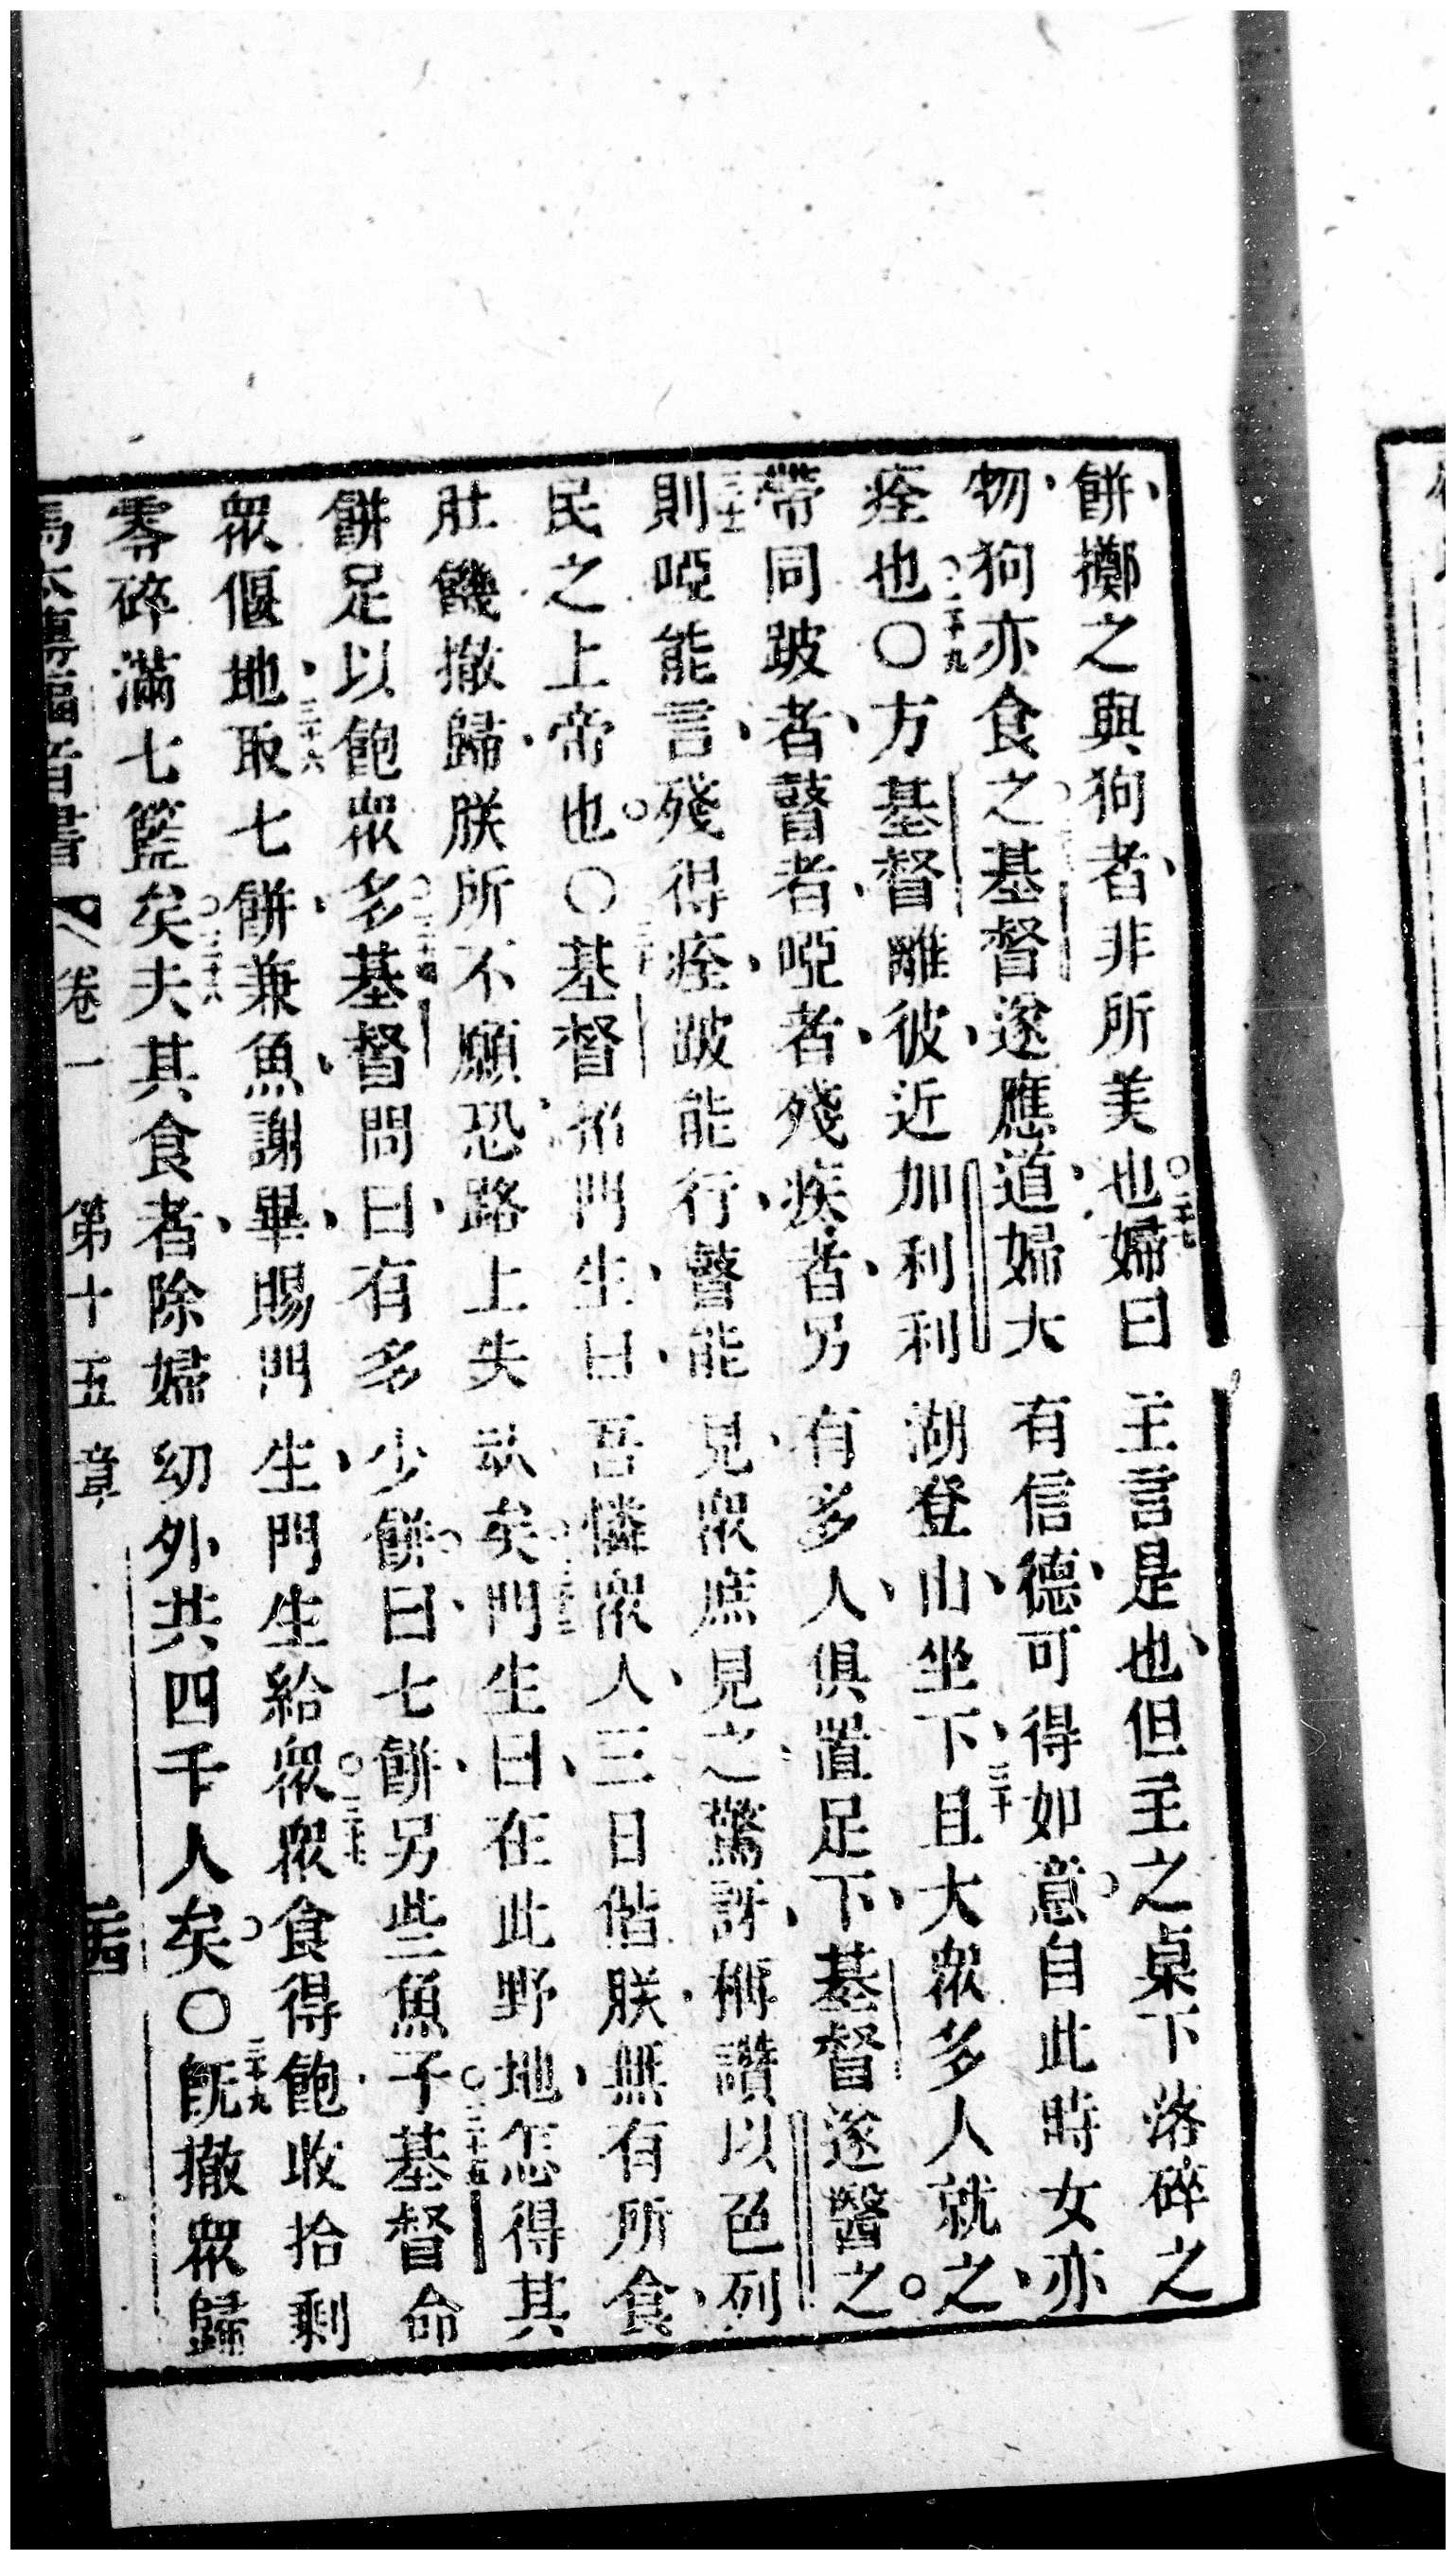 餅、擲之與狗者、非所美也。二十七婦曰主言是也、但主之桌下落碎之
物、狗亦食之。基督遂應道、婦大有信德、可得如意。自此時女亦
痊也。〇二十九方基督離彼、近加利利湖登山、坐下、三十且大衆多人就之、
帶同跛者、瞽者、啞者、殘疾者、另有多人、俱置足下、基督遂醫之。
三十一則啞能言、殘得痊、跛能行、瞽能見、衆庶見之、驚訝、稱讚以色列
民之上帝也。〇三十二基督招門生、曰、吾憐衆人、三日偕朕、無有所食、
肚饑、撤歸、朕所不願、恐路上失於矣。三十三門生曰、在此野地、怎得其
餅足以飽衆多。三十四基督問曰、有多少餅。曰、七餅、另些魚子。三十五基督命
衆偃地、三十六取七餅、兼魚、謝畢、賜門生、門生給衆。三十七衆食得飽、收拾剩
零碎滿七籃矣。三十八夫其食者、除婦幼外、共四千人矣。〇三十九既撤衆歸
馬太傳福音書 卷一 第十五章 三四